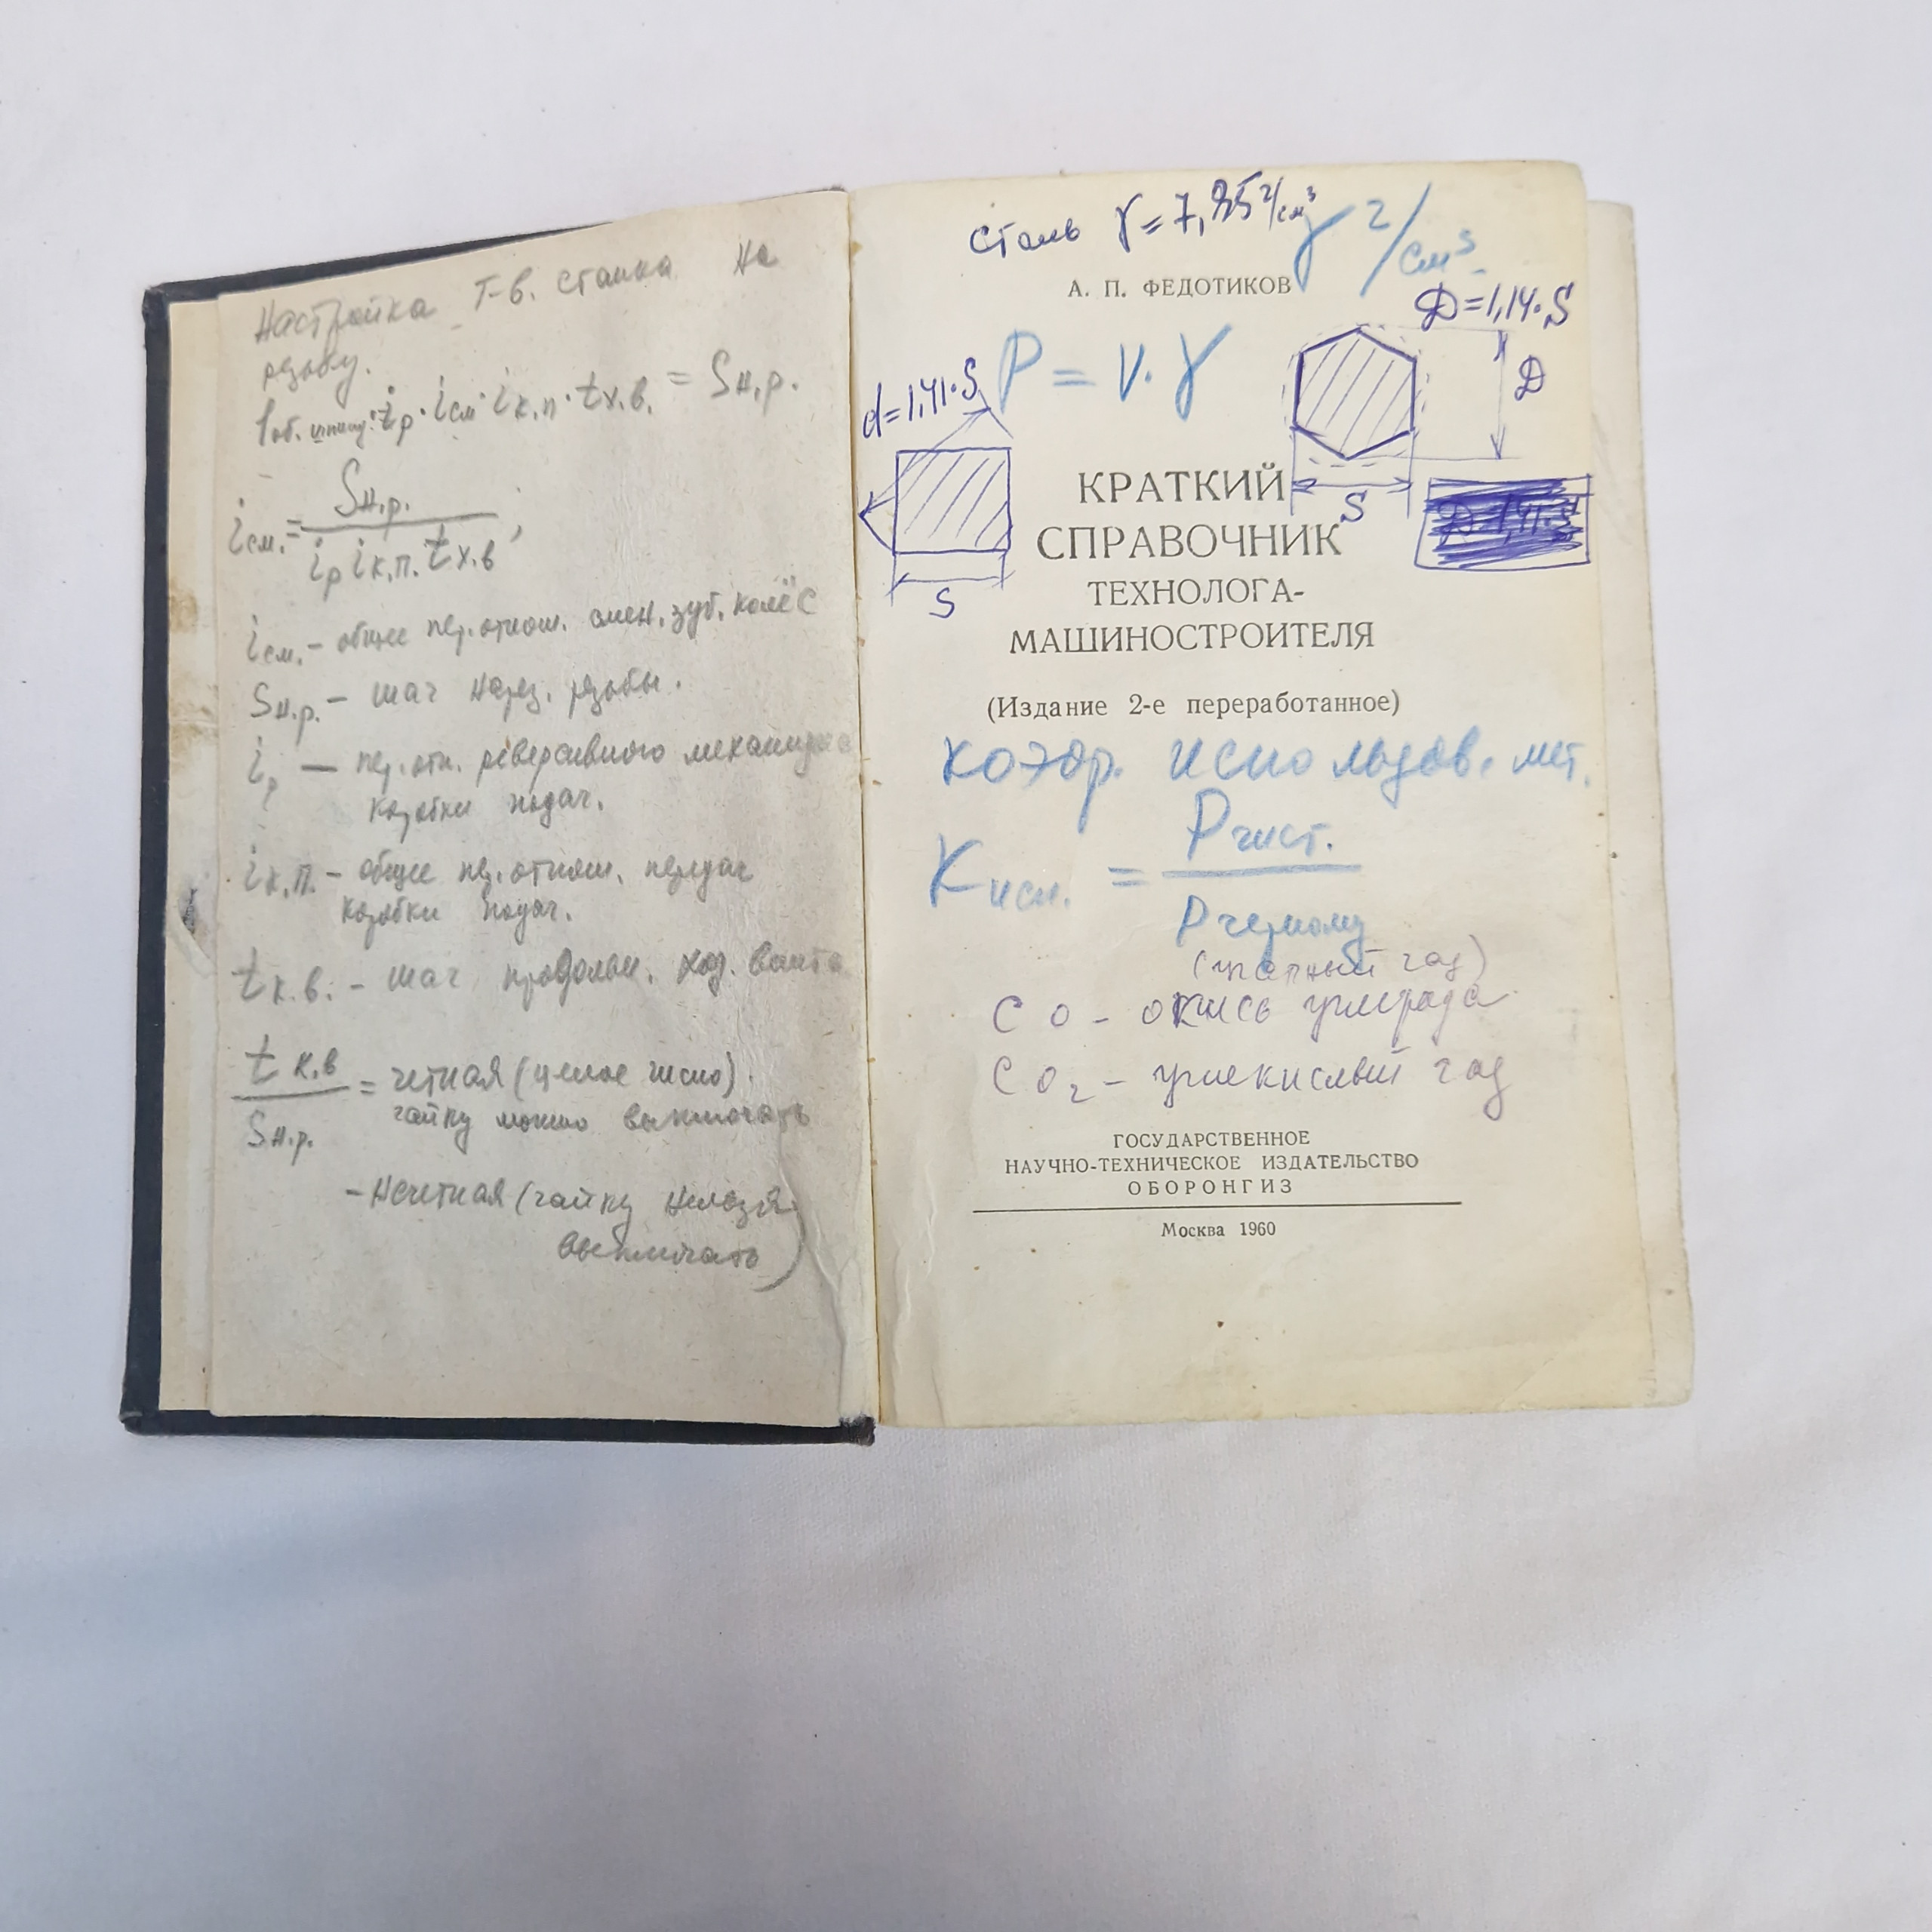 Настройка т-в. станка на
резьбу.
1 об. шпинд. · iр · iсм · iк.п · tх.в. = Sн.р.
iсм. = Sн.р. / iр iк.п. tх.в ;
iсм. – общее пер. отнош. смен. зуб. колёс
Sн.р. – шаг нарез. резьбы.
iр — пер. отн. реверсивного механизма
коробки подач.
iк.п. – общее пер. отнош. передач
коробки подач.
tк.в. – шаг продольн. ход. винта
tк.в / Sн.р. = четная (целое число).
гайку можно выключать
– нечетная (гайку нельзя
выключать)
сталь γ = 7,85 г/см³
γ г/см³
А. П. ФЕДОТИКОВ
D = 1,14 · S
P = V · γ
D
d = 1,41 · S
S
S
КРАТКИЙ
СПРАВОЧНИК
ТЕХНОЛОГА-
МАШИНОСТРОИТЕЛЯ
(Издание 2-е переработанное)
коэф. использов. мет.
Kисп. = Pчист. / Pчерному
(угарный газ)
CO – окись углерода
CO₂ – углекислый газ
ГОСУДАРСТВЕННОЕ
НАУЧНО-ТЕХНИЧЕСКОЕ ИЗДАТЕЛЬСТВО
ОБОРОНГИЗ
Москва 1960